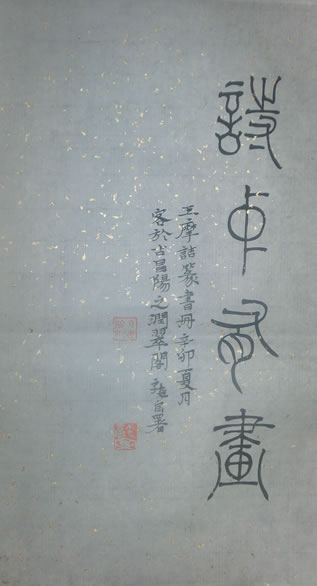 詩中有畫
王摩詰篆書冊辛卯夏月
客於古昌陽之潤翠閣